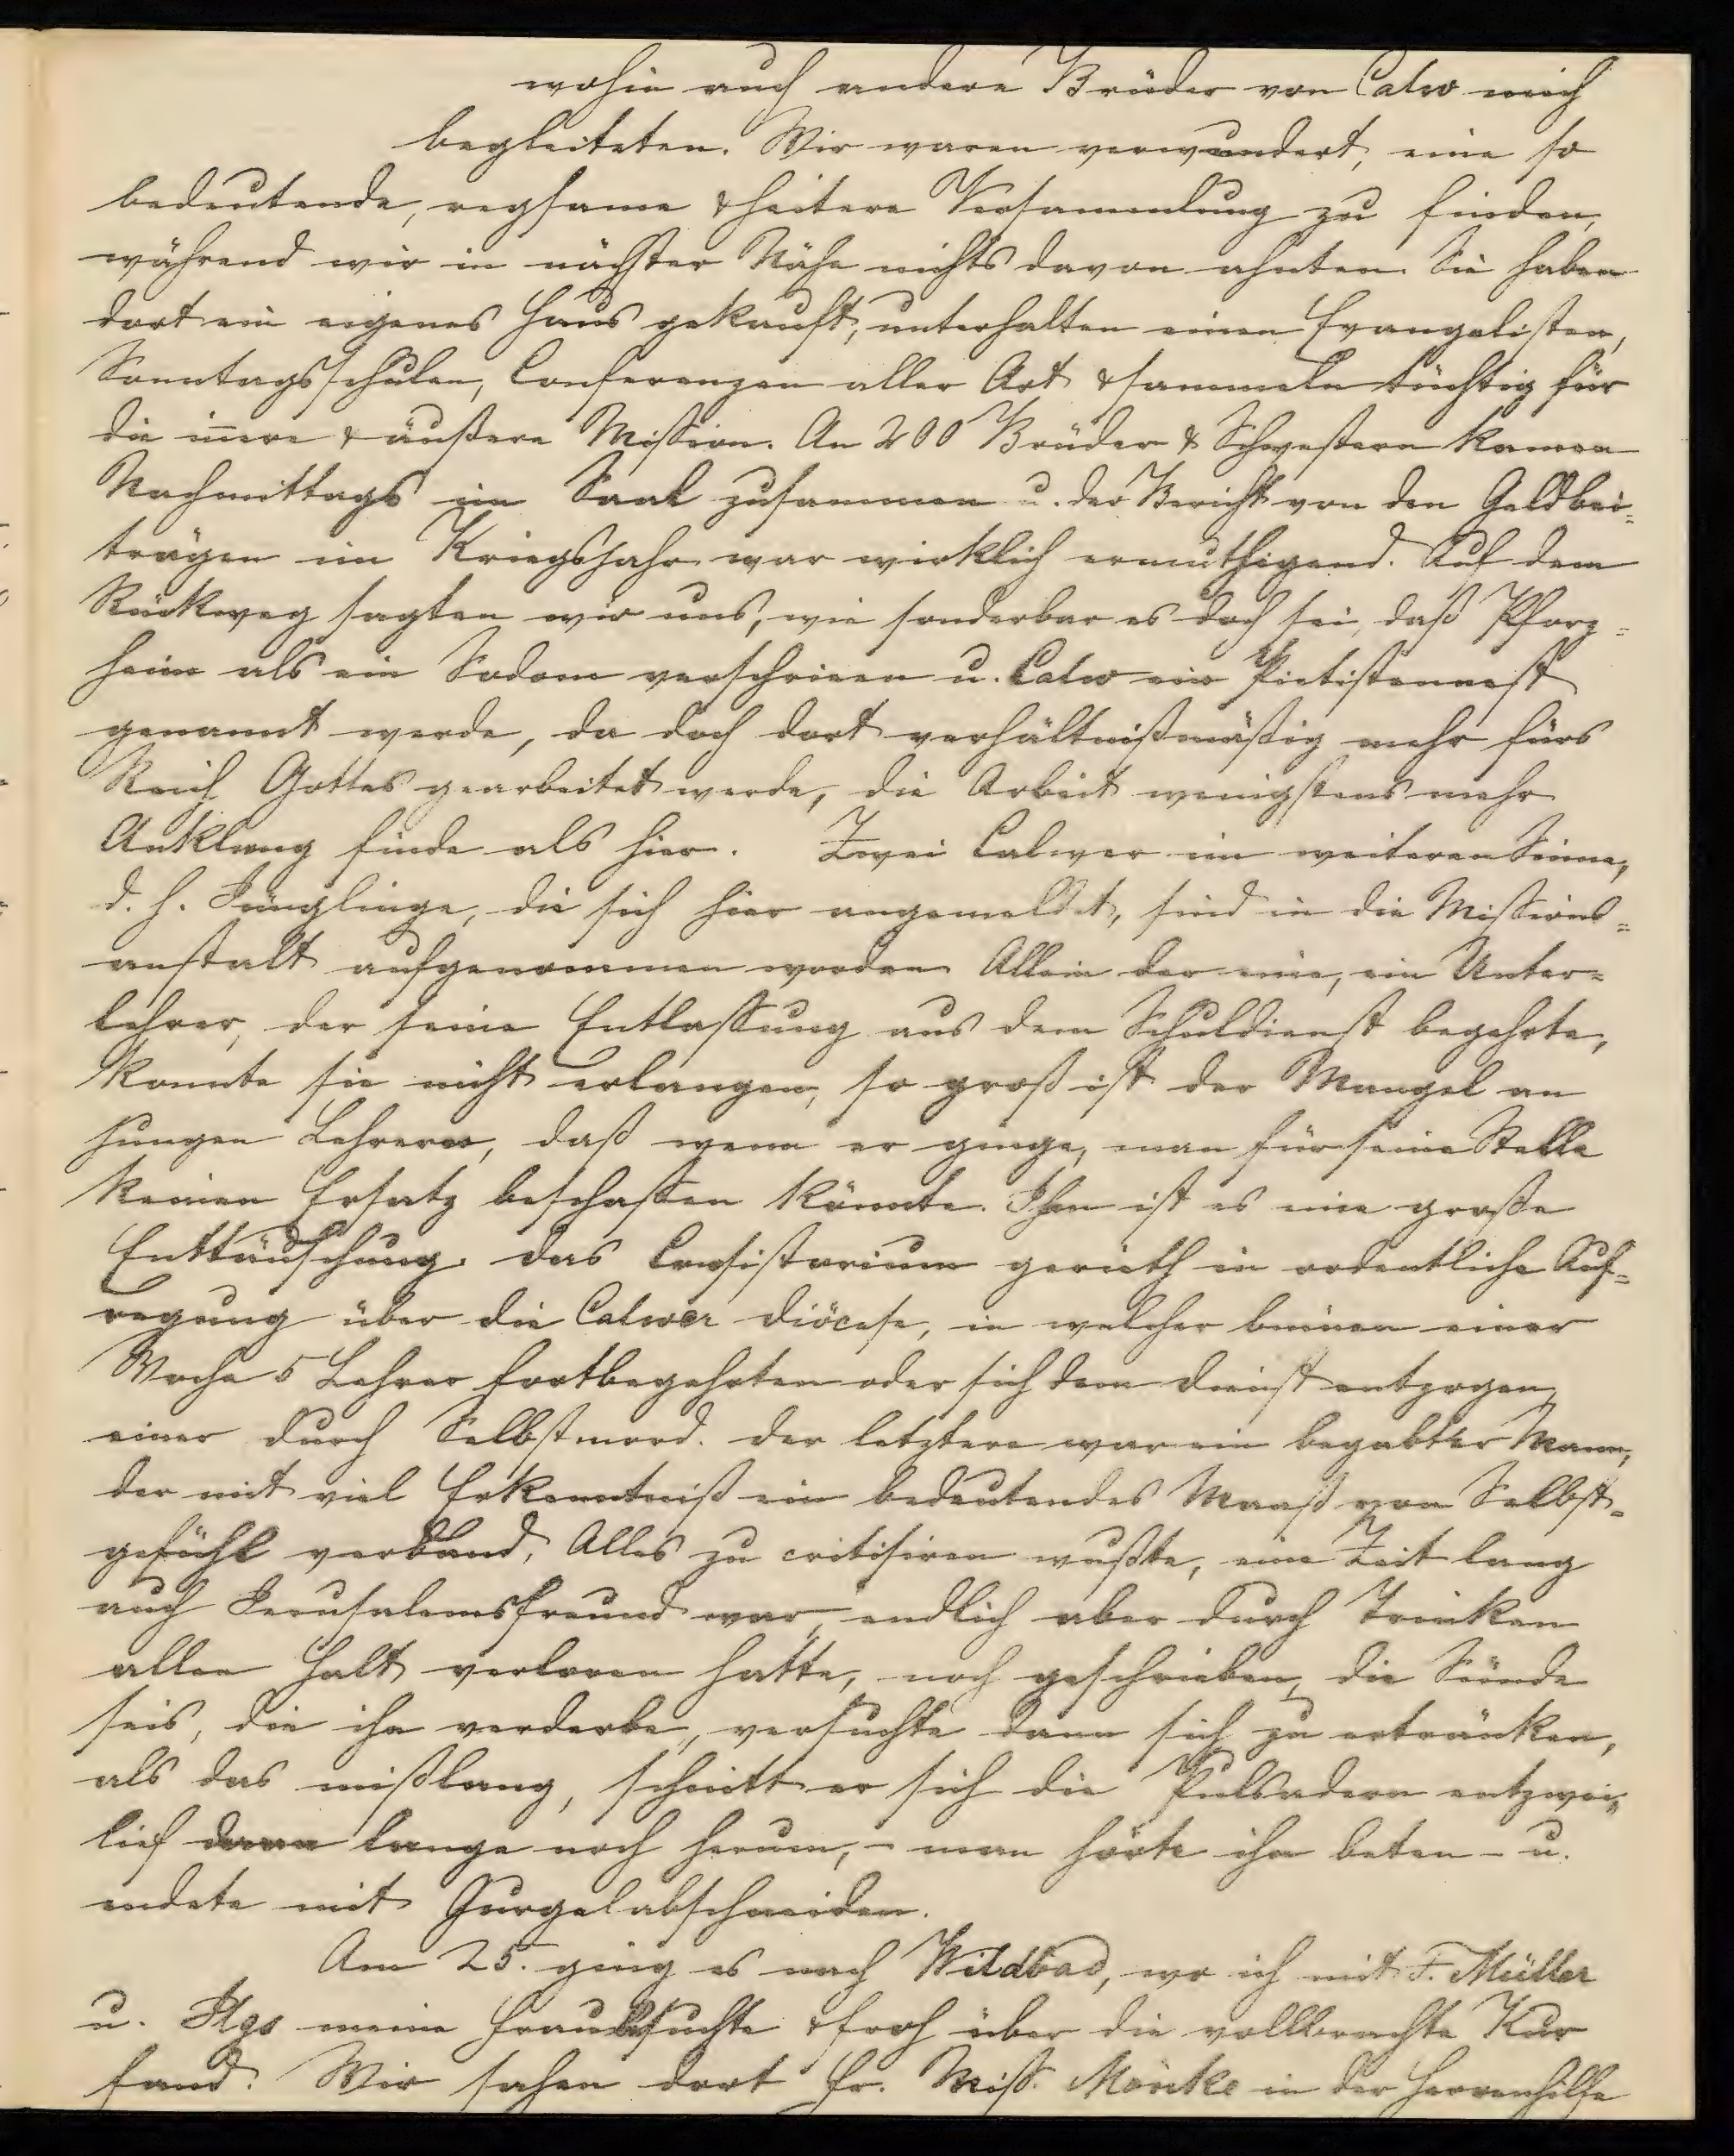 wohin auch andere Brüder von Calw mich
begleiteten. Wir waren verwundert, eine so
bedeutende, regsame & heitere Versammlung zu finden,
während wir in nächster Nähe nichts davon ahnten. Sie haben
dort ein eigenes Haus gekauft, unterhalten einen Evangelisten,
Sonntagsschulen, Conferenzen aller Art & sammeln tüchtig für
die iñere & äußere Mission. An 200 Brüder & Schwestern kamen
Nachmittags im Saal zusammen u. der Bericht von den Geldbei=
trägen im Kriegsjahr war wirklich ermuthigend. Auf dem
Rückweg sagten wir uns, wie sonderbar es doch sei, daß Pforz=
heim als ein Sodom verschrieen u. Calw ein Pietistennest
genannt werde, da doch dort verhältnißmäßig mehr fürs
Reich Gottes gearbeitet werde, die Arbeit wenigstens mehr
Anklang finde als hier. Zwei Calwer im weiteren Sinne,
d. h. Jünglinge, die sich hier angemeldet, sind in die Missions=
anstalt aufgenommen worden. Allein der eine, ein Unter=
lehrer, der seine Entlassung aus dem Schuldienst begehrte,
konnte sie nicht erlangen, so groß ist der Mangel an
jungen Lehrern, daß wenn er ginge, man für seine Stelle
keinen Ersatz beschaffen könnte. Ihm ist es eine große
Enttäuschung. Das Consistorium gerieth in ordentliche Auf=
regung über die Calwer Diöcese, in welcher binnen einer
Woche 5 Lehrer fortbegehrten oder sich dem Dienst entzogen,
einer durch Selbstmord. Der letztere war ein begabter Mann,
der mit viel Erkenntniß ein bedeutendes Maaß von Selbst=
gefühl verband, Alles zu critisiren wußte, eine Zeit lang
auch Jerusalemsfreund war, endlich aber durch Trinken
allen Halt verloren hatte, noch geschrieben, die Sünde
seis, die ihn verderbe, versuchte dann sich zu ertränken,
als das mißlang, schnitt er sich die Pulsadern entzwei,
lief dann lange noch herum, – man hörte ihn beten – u.
endete mit Gurgelabschneiden.
Am 25. ging es nach Wildbad, wo ich mit F. Müller
u. meine Frau besuchte & froh über die vollbrachte Kur
fand. Wir sahen dort Fr. Miss. Mönke in der Herrenhilfe